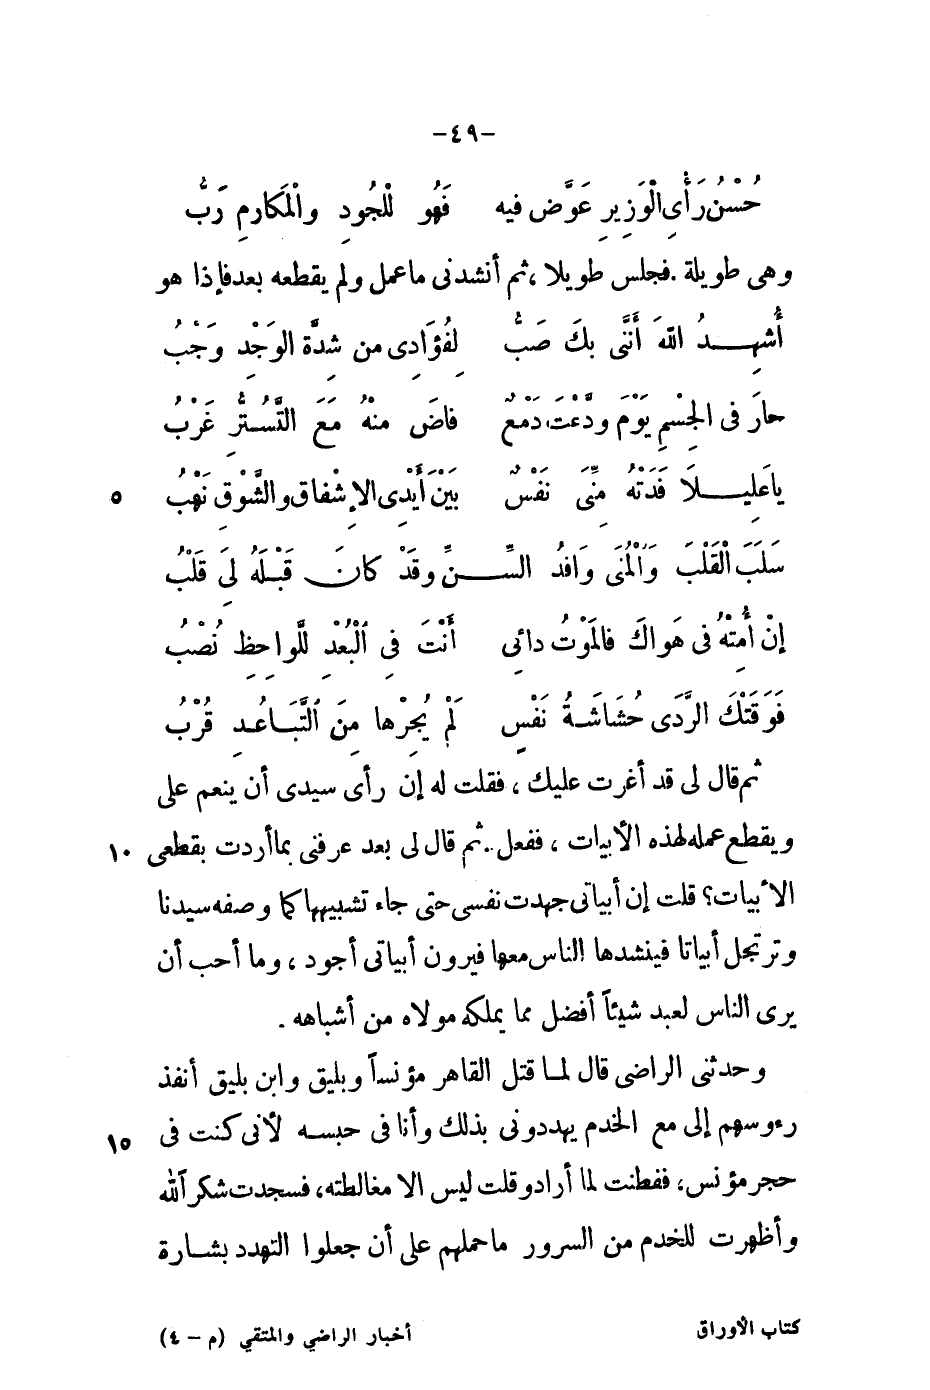 -٤٩-
حُسْنُ رَأْىِ الْوَزِيرِ عَوَّضَ فيه فَهُو لْلجُودِ والْمَكارِمِ رَبُّ
وهى طويلة . فجلس طويلا ، ثم أنشدنى ما عمل ولم يقطعه بعد فإذا هو
أُشهِدُ اللهَ أَنَّنى بكَ صَبُّ لِفُؤَادِى من شِدَّةِ الوَجْدِ وَجْبُ
حارَ فى الجِسْمِ يَوْمَ ودَّعْتَ دَمْعٌ فاضَ منْهُ مَعَ التَّسَتُّرِ غَرْبُ
ياعَلِيلاً فَدَتْهُ مِنِّى نَفْسٌ بَيْنَ أَيْدِى الإِشْفاقِ والشَّوْقِ نَهْبُ
٥
سَلَبَ الْقَلْبَ وَالْمُنَى وَافِدُ السِّنِّ وقَدْ كانَ قَبْلَهُ لِىَ قَلْبُ
إنْ أَمِتْهُ فى هَواكَ فالمَوْتُ دائِى أَنْتَ فِى اَلْبُعْدِ لِلَّواحِظِ نُصْبُ
فَوَقَتْكَ الرَّدَى حُشَاشَةُ نَفْسٍ لَمْ يُجِرْها مِنَ اَلتَّبَاعُدِ قُرْبُ
ثم قال لى قد أغرت عليك ، فقلت له إن رأى سيدى أن ينعم على
ويقطع عمله لهذه الأبيات ، ففعل . ثم قال لى بعد عرفنى بما أردت بقطعى
١٠
الأبيات؟ قلت إن أبياتى جهدت نفسى حتى جاء تشبيهها كما وصفه سيدنا
وترتجل أبياتا فينشدها الناس معها فيرون أبياتى أجود ، وما أحب أن
يرى الناس لعبد شيئاً أفضل مما يملكه مولاه من أشباهه .
وحدثنى الراضى قال لما قتل القاهر مؤنساً وبليق وابن بليق أنفذ
رءوسهم إلى مع الخدم يهددونى بذلك وأنا فى حبسه لأنى كنت فى
١٥
حجر مؤنس، ففطنت لما أراد وقلت ليس الا مغالطته، فسجدت شكر اَلله
وأظهرت للخدم من السرور ما حملهم على أن جعلوا التهدد بشارة
كتاب الأوراق أخبار الراضي والمتقي (م – ٤)